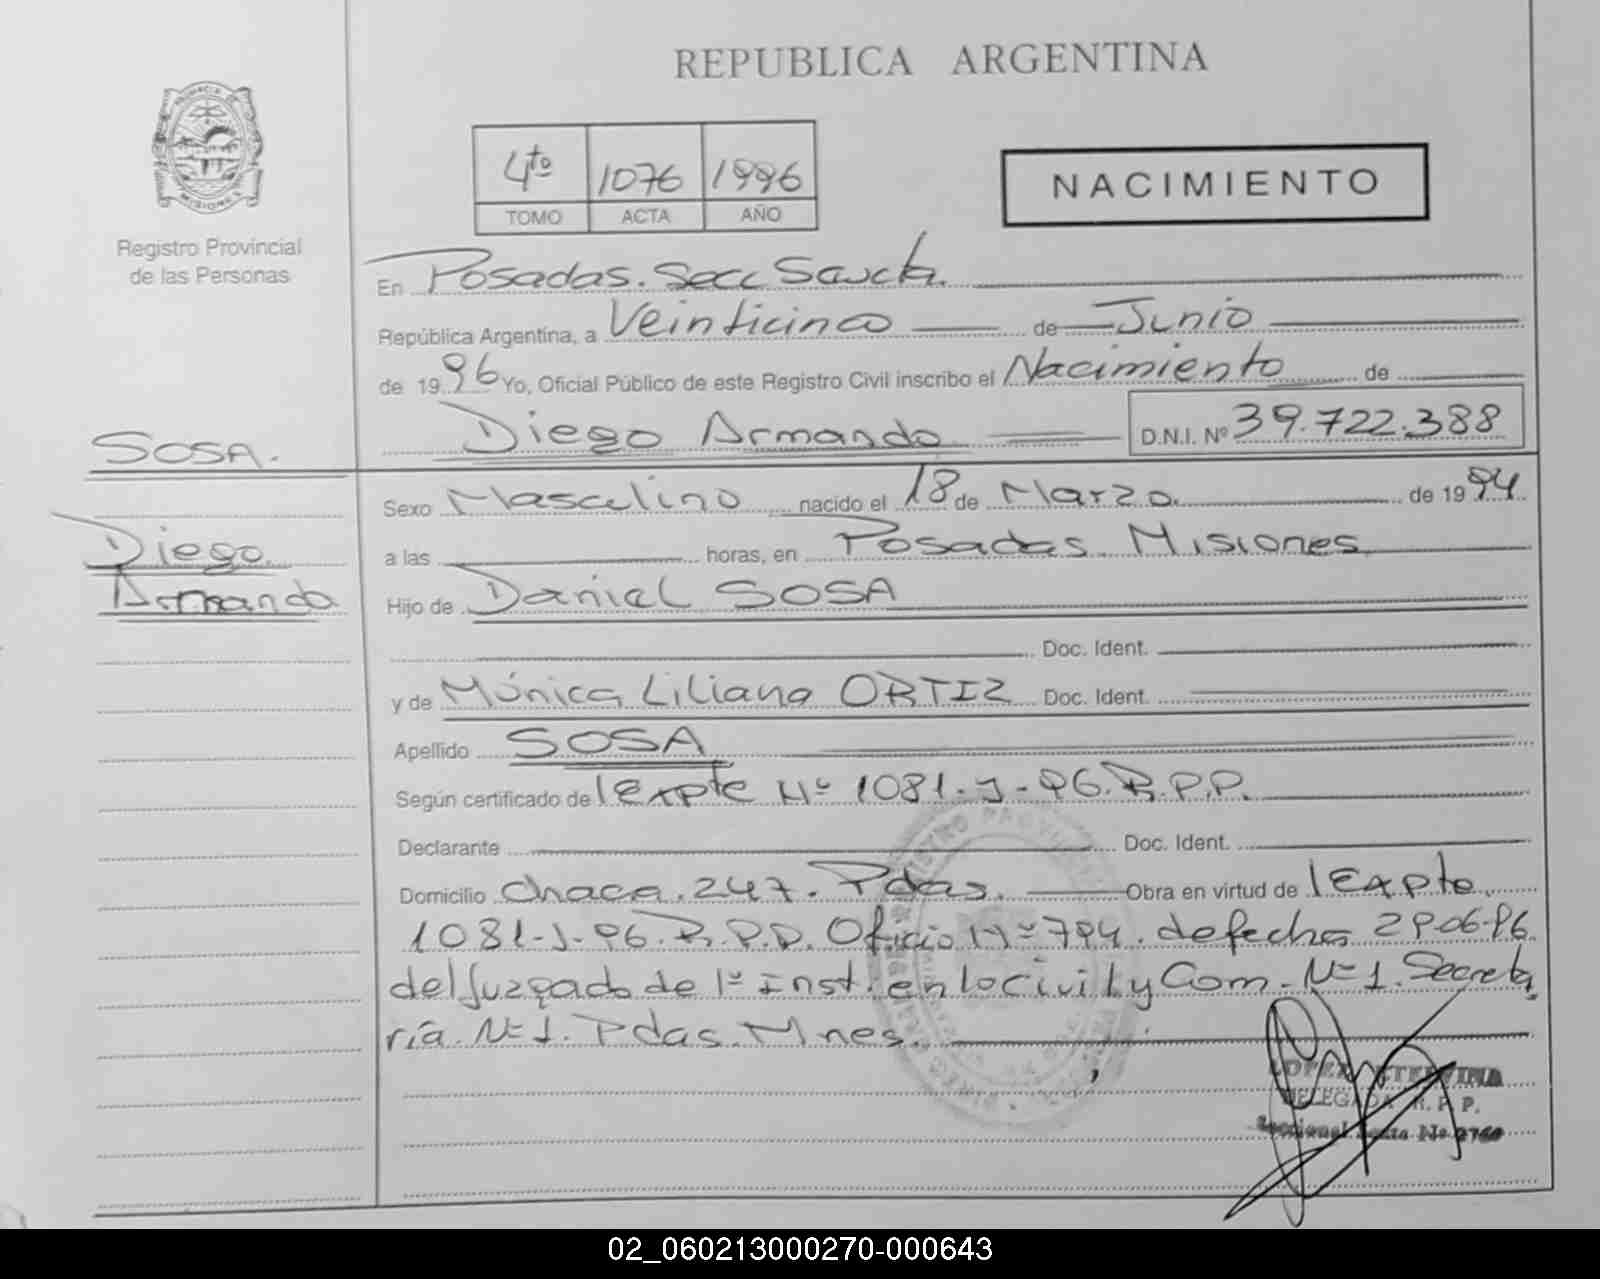 REPUBLICA ARGENTINA
PROVINCIA DE
MISIONES
Registro Provincial
de las Personas
4to 1076 1996
TOMO ACTA AÑO
NACIMIENTO
En Posadas. Secc Sexta.
República Argentina, a Veinticinco de Junio
de 1996 Yo, Oficial Público de este Registro Civil inscribo el Nacimiento de
Diego Armando D.N.I. Nº 39.722.388
SOSA.
Diego
Armando
Sexo Masculino nacido el 18 de Marzo de 1994
a las horas, en Posadas Misiones
Hijo de Daniel SOSA
Doc. Ident.
y de Mónica Liliana ORTIZ Doc. Ident.
Apellido SOSA
Según certificado de Expte Nº 1081-J-96.R.P.P.
Declarante Doc. Ident.
Domicilio Chaca. 247. Pdas. Obra en virtud de Expte
1081-J-96.R.P.P. Oficio Nº 794. de fecha 06-96
del Juzgado de 1º Inst. en lo Civil y Com. Nº 1. Secreta
ría Nº 1. Pdas. Mnes.
LOPEZ
DELEGADA R. P. P.
Seccional Sexta Nº 2760
02_060213000270-000643